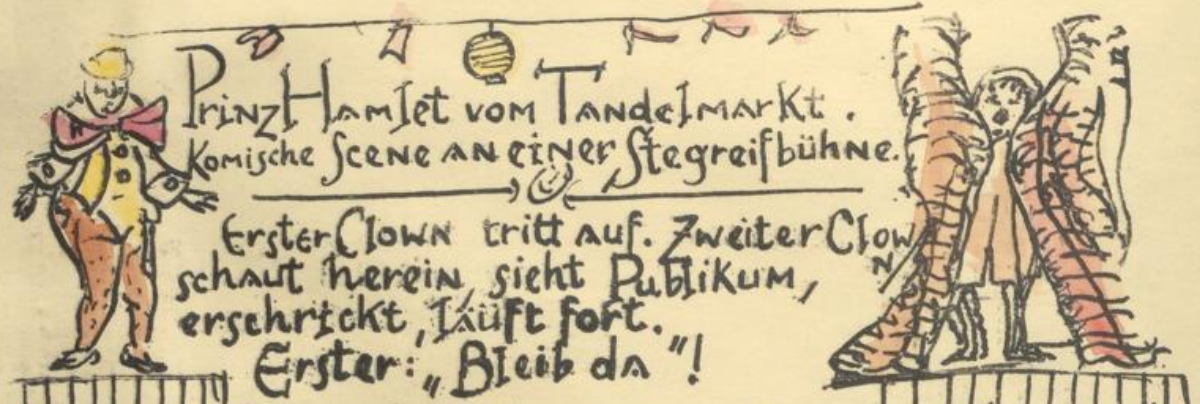 Prinz Hamlet vom Tandelmarkt.
Komische Scene an einer Stegreifbühne.
Erster Clown tritt auf. Zweiter Clown
schaut herein, sieht Publikum,
erschrickt, läuft fort.
Erster: „Bleib da"!